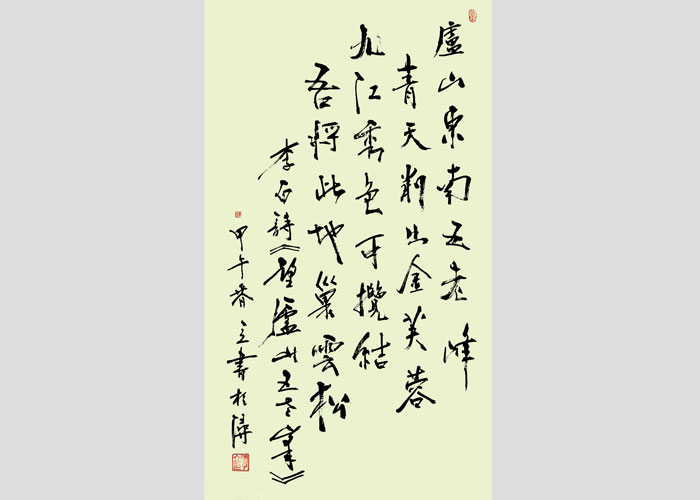 廬山東南五老峰
青天削出金芙蓉
九江秀色可攬結
吾將此地巢雲松
李白詩《望廬山五老峯》
甲午春立書於潯